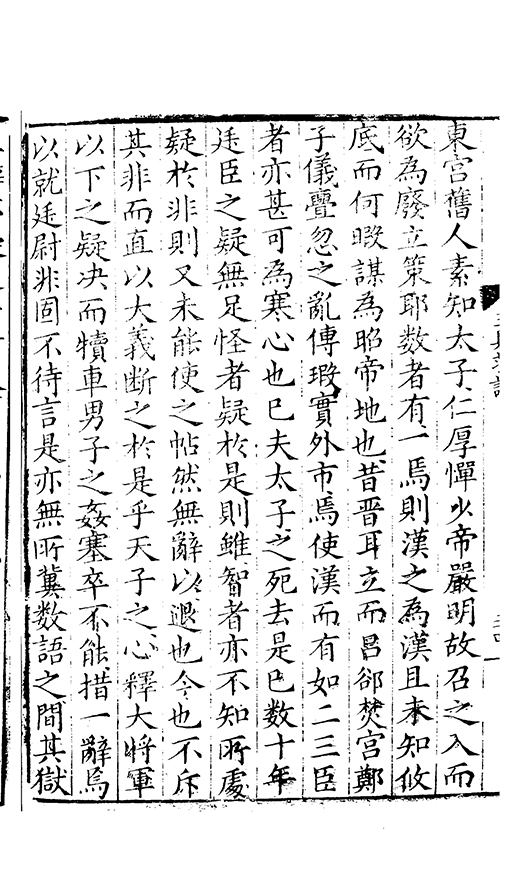 東宮舊人素知太子仁厚憚少帝嚴明故召之入而
欲為廢立策耶数者有一焉則漢之為漢且未知攸
底而何暇謀為昭帝地也昔晋耳立而呂郤焚宮鄭
子儀亹忽之亂傳瑕實外市焉使漢而有如二三臣
者亦甚可為寒心也已夫太子之死去是巳数十年
廷臣之疑無足怪者疑於是則雖智者亦不知所處
疑於非則又未能使之帖然無辭以退也今也不斥
其非而直以大義断之於是乎天子之心釋大將軍
以下之疑决而犢車男子之姦塞卒不能措一辭焉
以就廷尉非固不待言是亦無所冀数語之間其獄